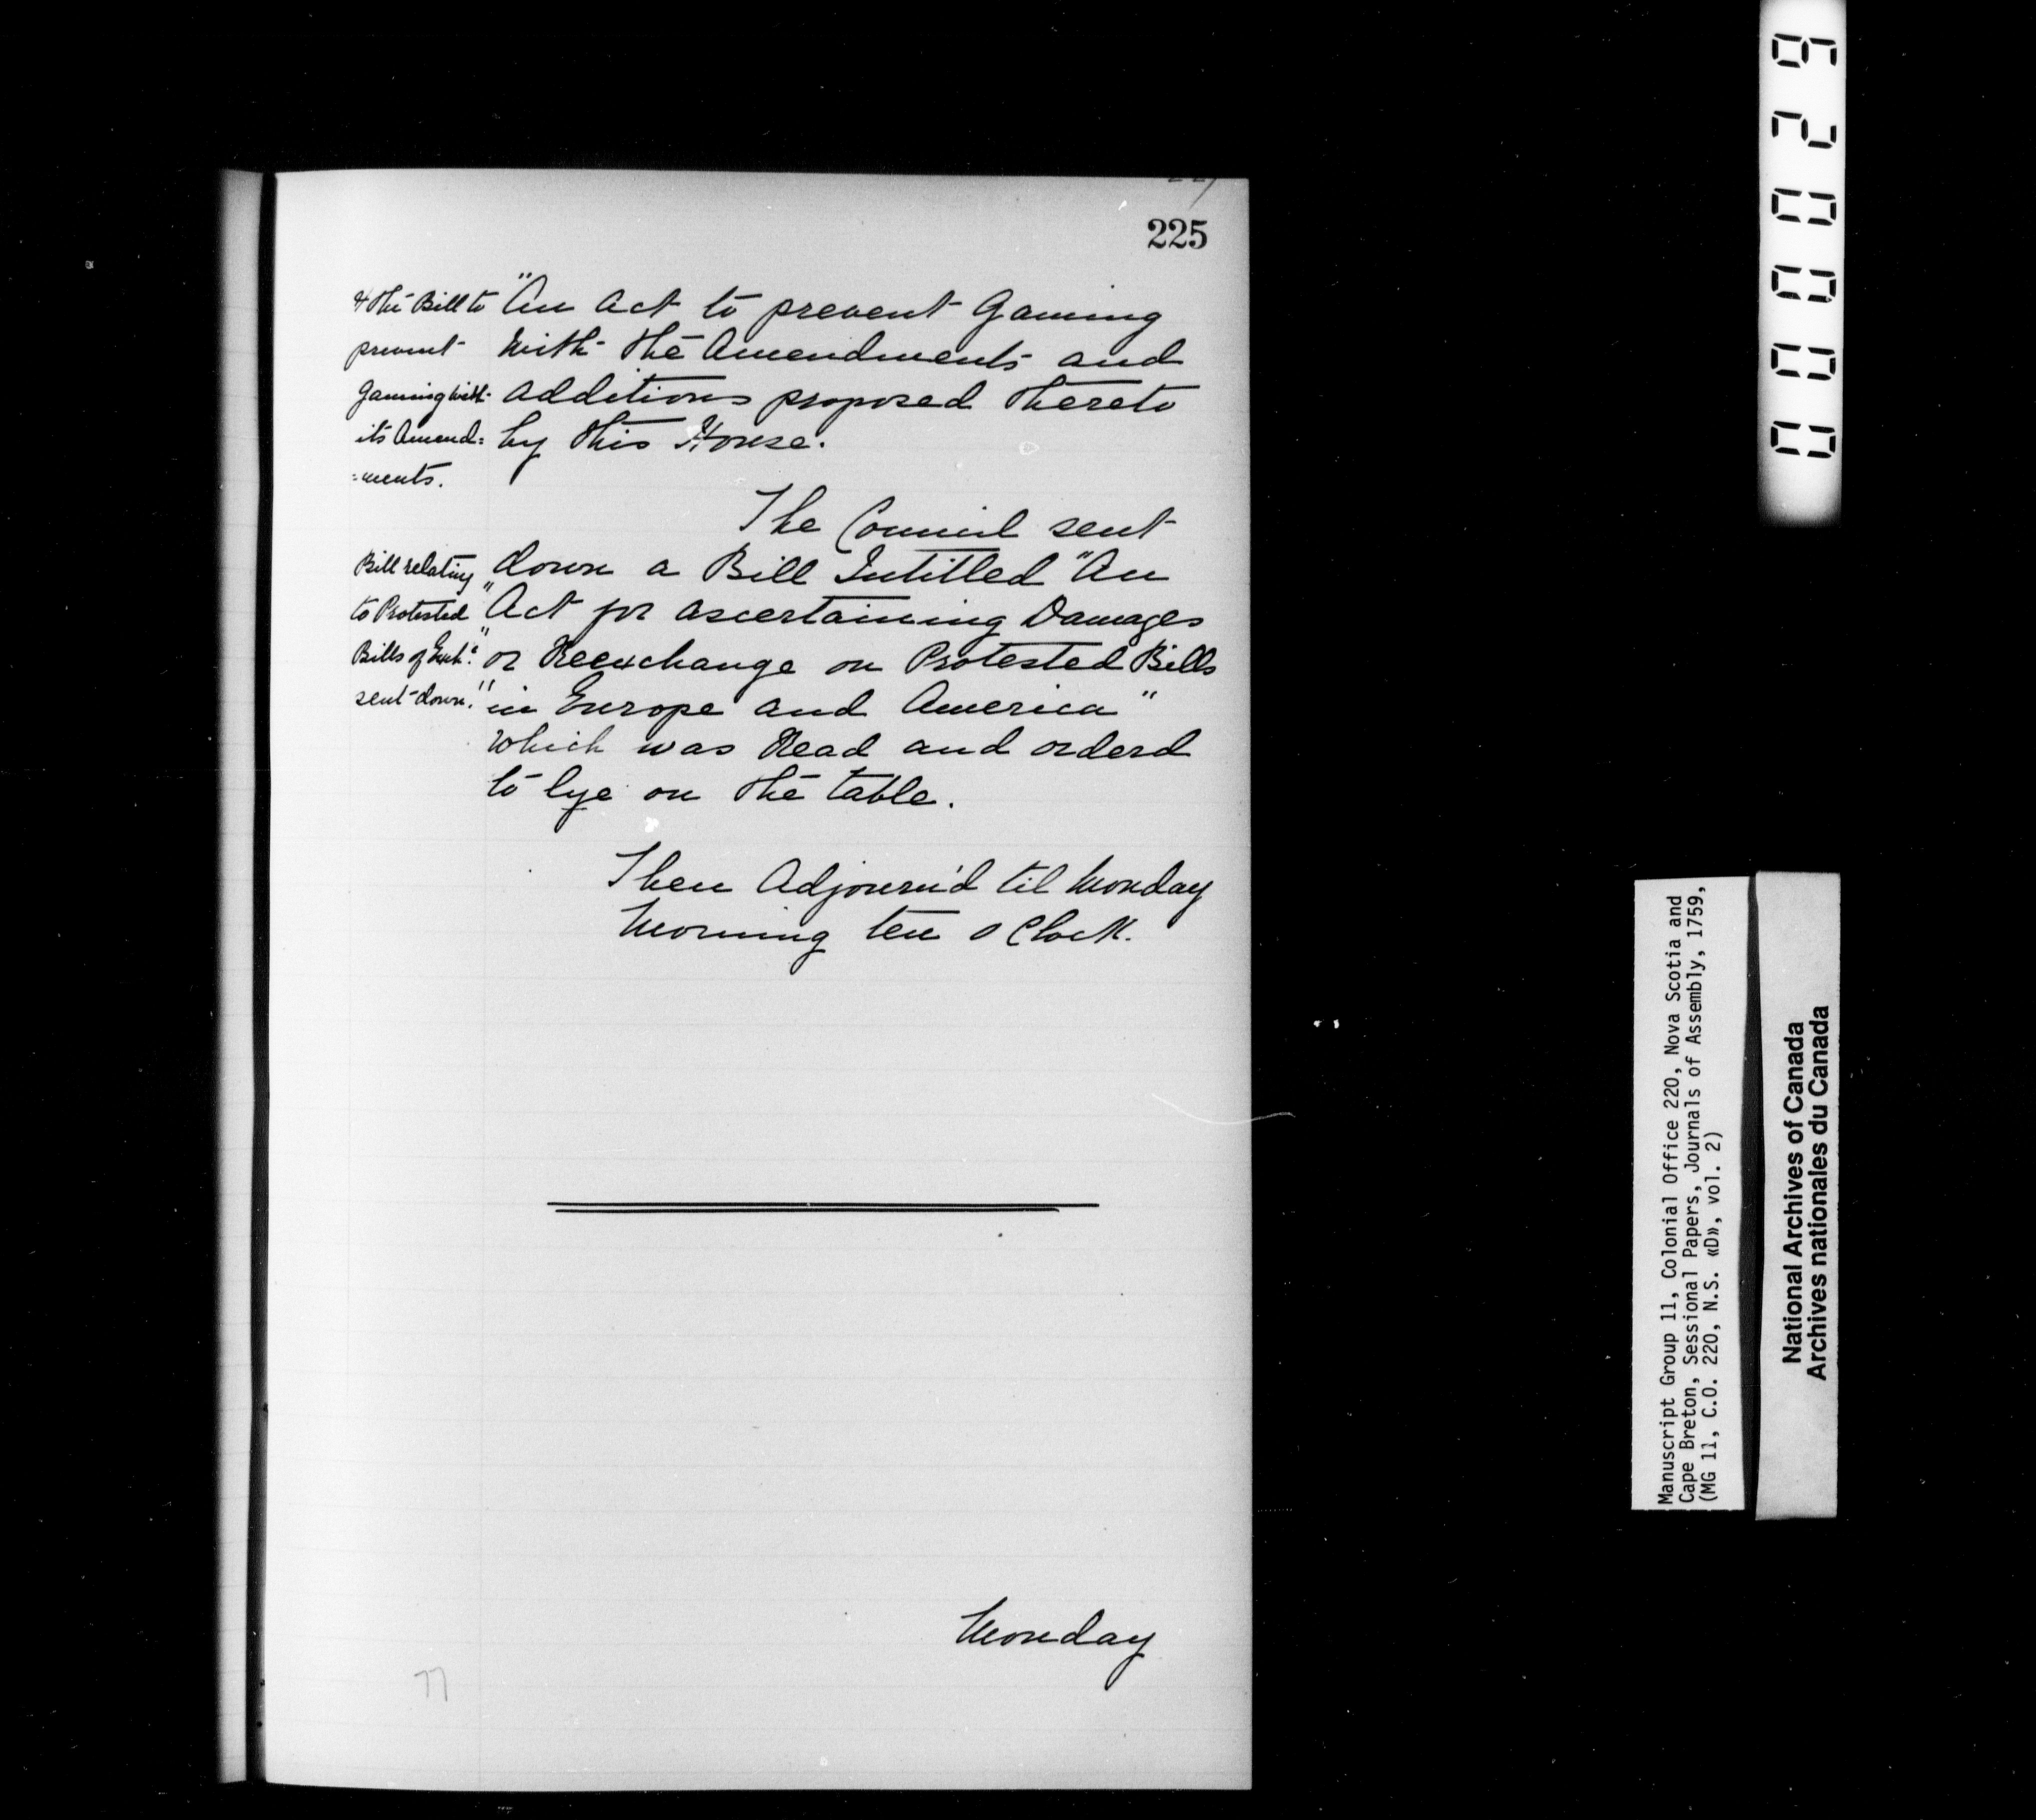 225
& the Bill to
prevent
Gaming with
its Amend=
=ments.
"An Act to prevent Gaming
with the Amendments and
additions proposed thereto
by this House.
The Council sent
Bill relating
to Protested
Bills of Exch.e
sent down.
down a Bill Intitled "An
"Act for ascertaining Damages
"or Reexchange on Protested Bills
"in Europe and America"
which was Read and orderd
to lye on the table.
Then Adjourn'd til Monday
Morning ten o Clock.
Monday
77
000029
Manuscript Group 11, Colonial Office 220, Nova Scotia and
Cape Breton, Sessional Papers, Journals of Assembly, 1759,
(MG 11, C.O. 220, N.S. «D», vol. 2)
National Archives of Canada
Archives nationales du Canada